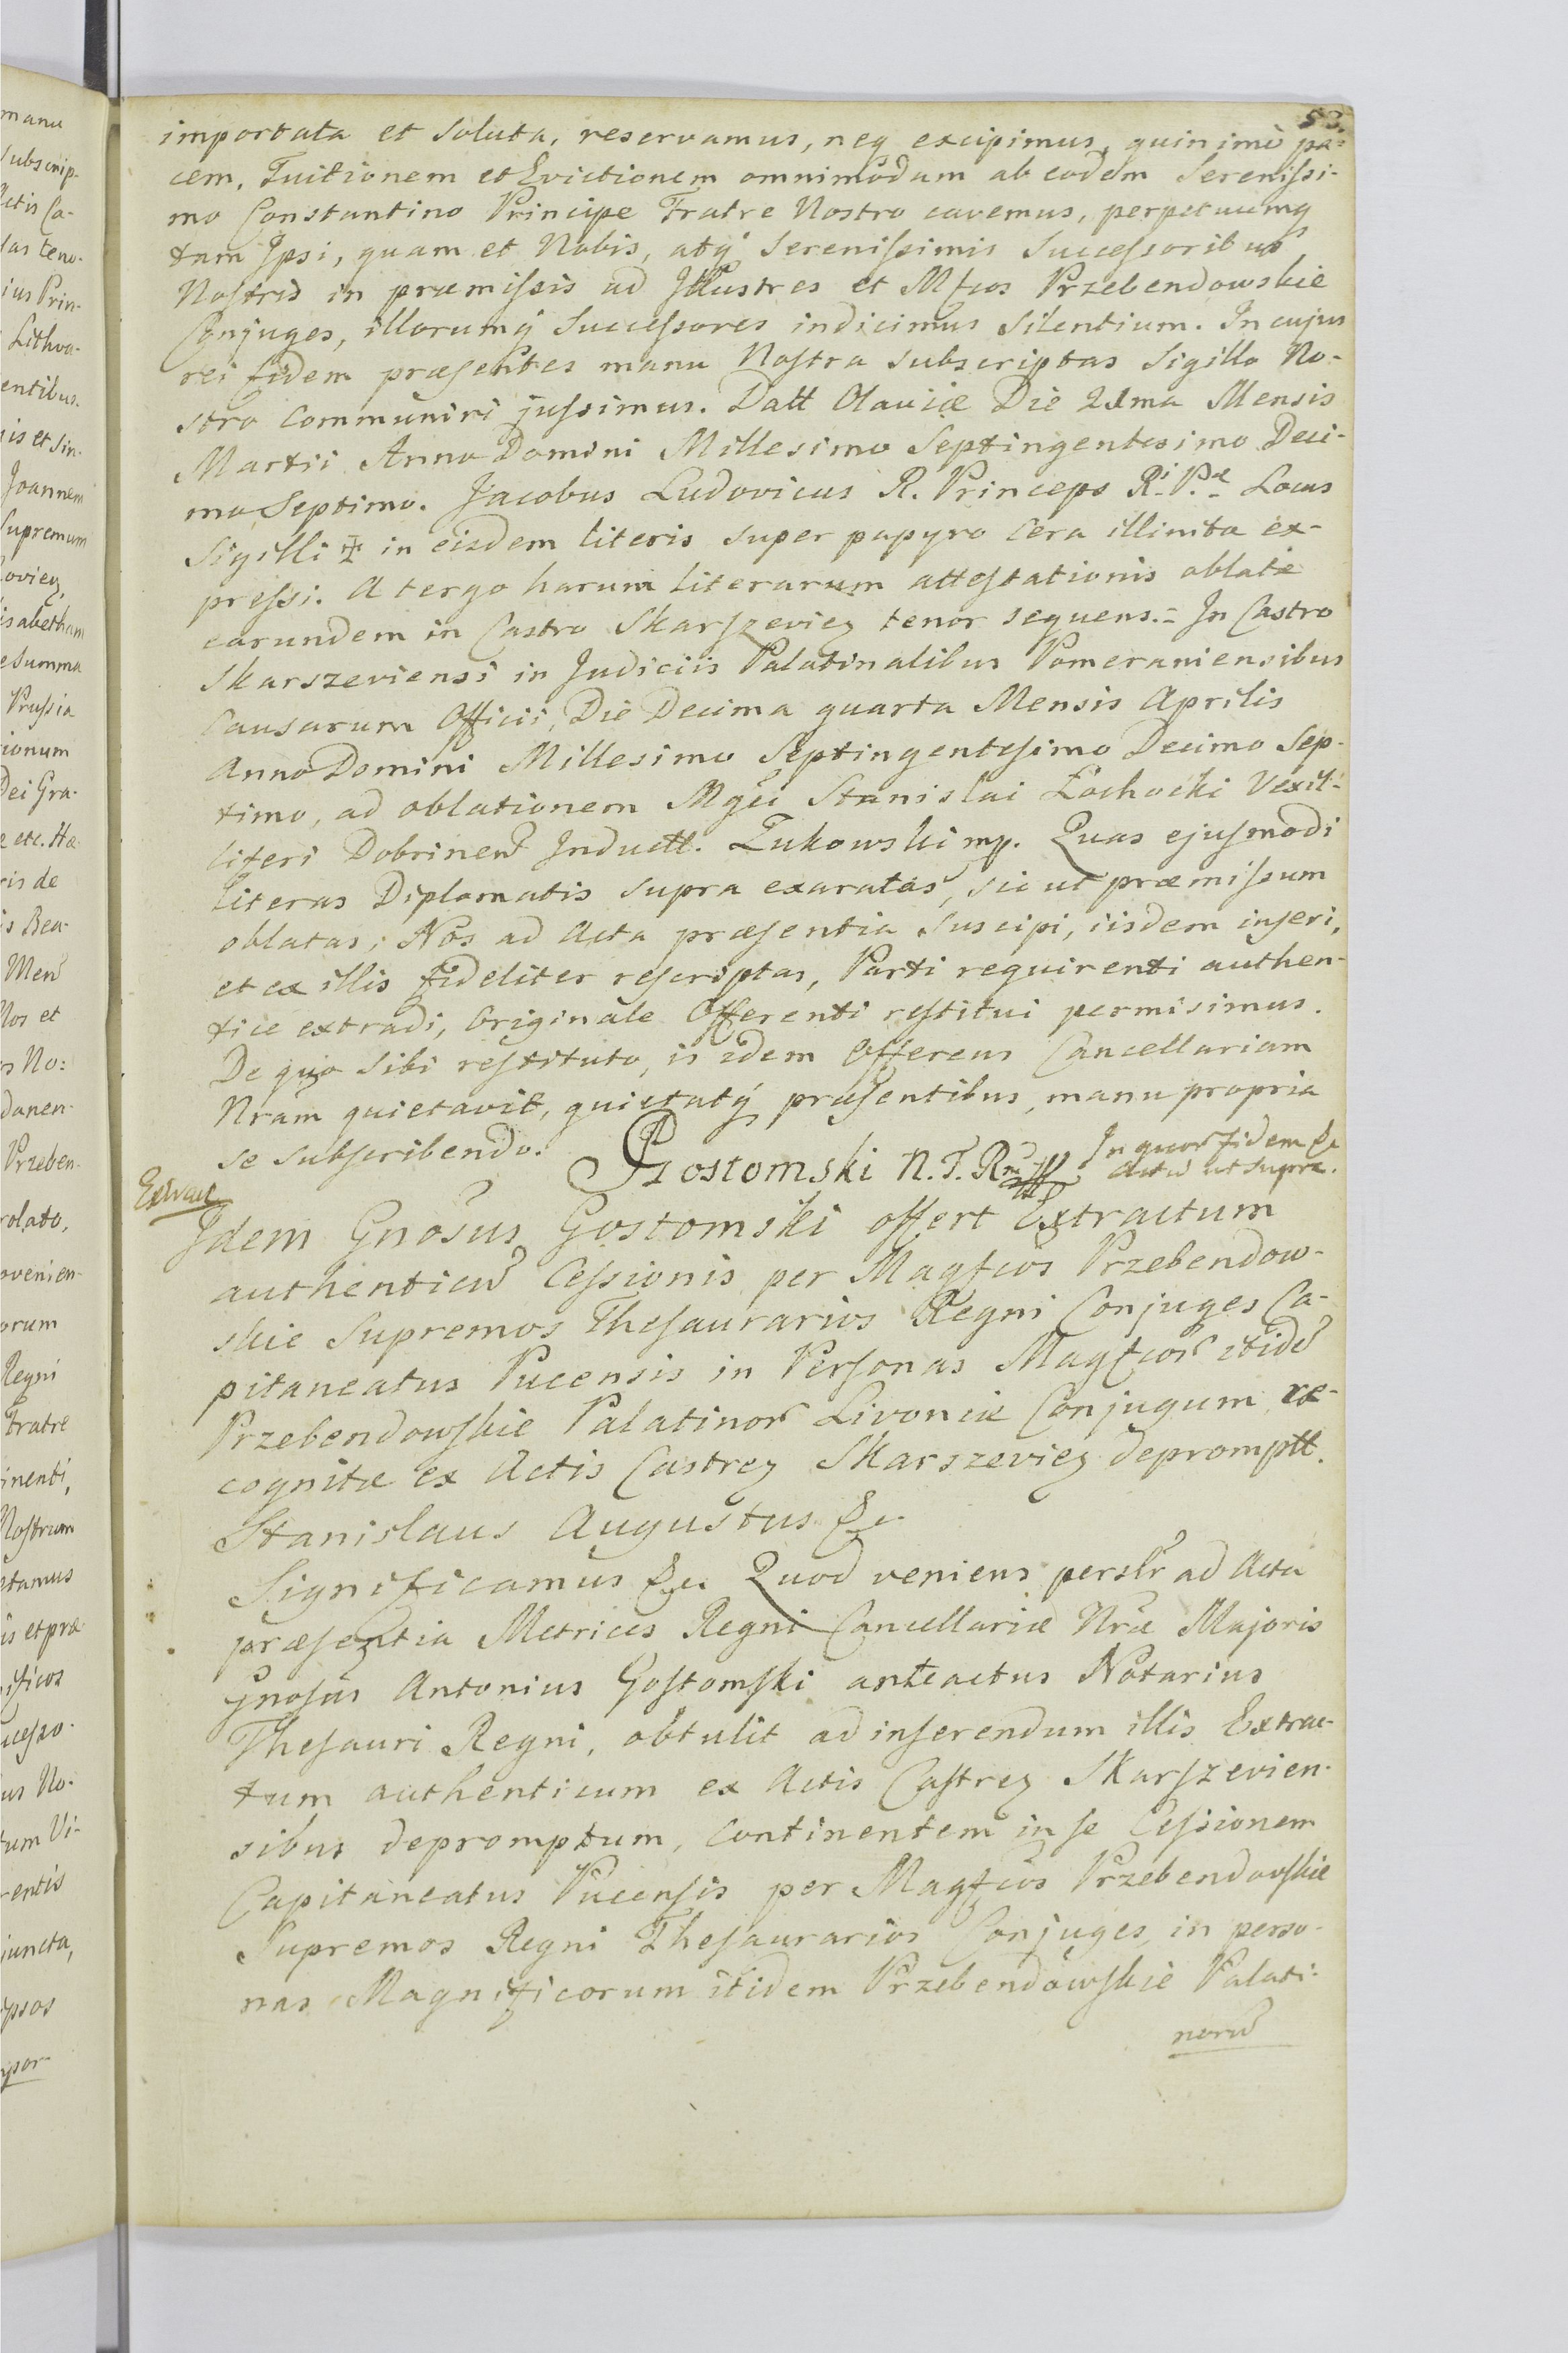 53.
importata et soluta, reservamus, neq excipimus, quin imò pa=
cem, Tuitionem et Evictionem omnimodam ab eodem Serenissi-
mo Constantino Principe Fratre Nostro cavemus, perpetuumq
tam Ipsi, quam et Nobis, atq Serenissimis Successoribus
Nostris in præmissis ad Illustres et Mfcos Przebendowskie
Conjuges, illorumq Successores indicimus silentium. In cujus
rei fidem præsentes manu Nostra subscriptas Sigillo No-
stro communiri jussimus. Datt Olaviæ Die 21ma Mensis
Martii Anno Domini Millesimo Septingentesimo Deci-
mo Septimo. Jacobus Ludovicus R. Princeps Ri. P.æ Locus
Sigilli ✠ in eisdem literis super papyro cera illinita ex-
pressi. A tergo harum literarum attestationis oblatæ
earundem in Castro Skarszeviey tenor sequens.- In Castro
Skarszeviensi in Judiciis Palatinalibus Pomeraniensibus
Causarum Officii, Die Decima quarta Mensis Aprilis
Anno Domini Millesimo Septingentesimo Decimo Sep-
timo, ad oblationem Mgci Stanislai Łochocki Vexil-
liferi Dobrinens Inductt. Zukowski mp. Quas ejusmodi
literas Diplomatis supra exaratas, sic ut præmissum
oblatas; Nos ad Acta præsentia suscipi, iisdem inseri,
et ex illis fideliter rescriptas, Parti requirenti authen-
tice extradi, Originale Offerenti restitui permisimus.
De quo sibi restituto, is idem Offerens Cancellariam
Nram quietavit, quietatq præsentibus, manu propria
se subscribendo. Gostomski N. T. R. In quor fidem &c
Actu ut supra.
Extract
Idem Gnosus Gostomski offert Extractum
authenticu Cessionis per Magfcos Przebendow-
skie Supremos Thesaurarios Regni Conjuges Ca-
pitaneatus Pucensis in Personas Magfcor itide
Przebendowskie Palatinor Livoniæ Conjugum re-
cognitæ ex Actis Castrey Skarszeviey depromptt.
Stanislaus Augustus &c.
Significamus &c. Quod veniens persl̃r ad Acta
præsentia Metrices Regni Cancellariæ Nræ Majoris
Gnosus Antonius Gostomski anteactus Notarius
Thesauri Regni, obtulit ad inserendum illis Extrac-
tum authenticum ex Actis Castrey Skarszevien-
sibus depromptum, continentem in se Cessionem
Capitaneatus Pucensis per Magfcos Przebendowskie
Supremos Regni Thesaurarios Conjuges, in perso-
nas Magnificorum itidem Przebendowskie Palati-
noru